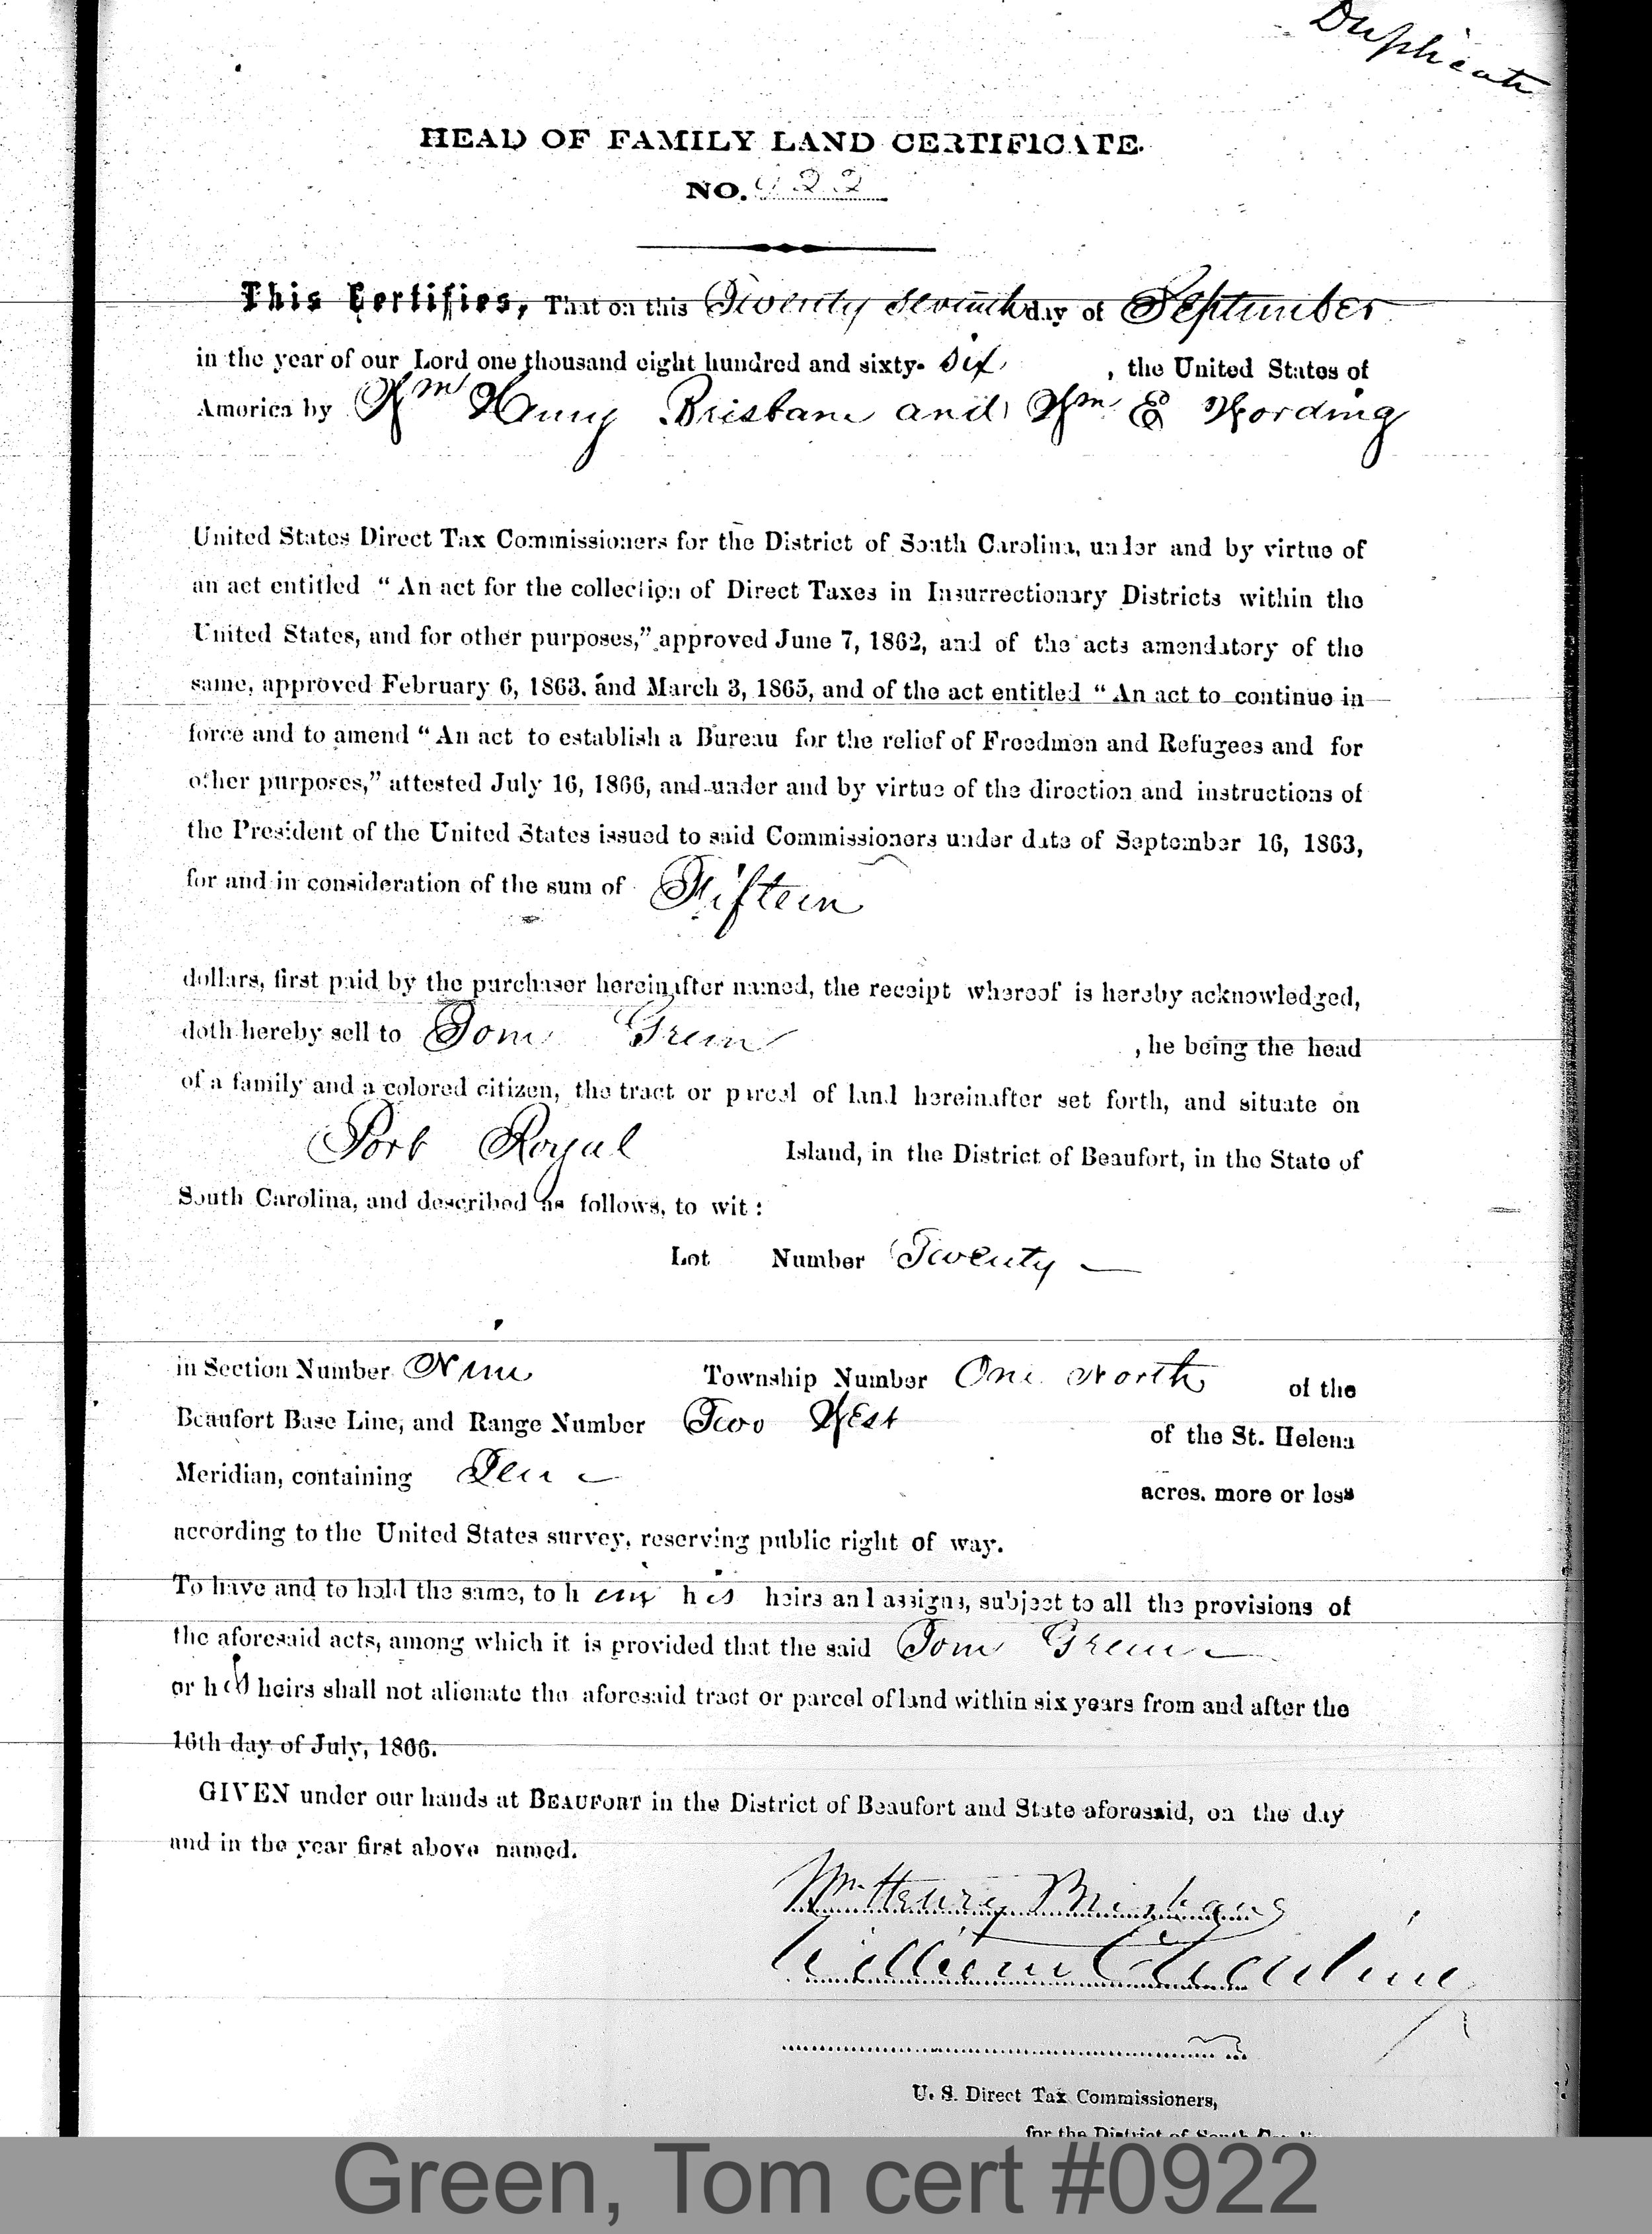 Duplicate
HEAD OF FAMILY LAND CERTIFICATE.
NO. 922
This Certifies, That on this Twenty seventh day of September
in the year of our Lord one thousand eight hundred and sixty- six , the United States of
America by Wm Henry Brisbane and Wm E Wording
United States Direct Tax Commissioners for the District of South Carolina, under and by virtue of
an act entitled “An act for the collection of Direct Taxes in Insurrectionary Districts within the
United States, and for other purposes,” approved June 7, 1862, and of the acts amendatory of the
same, approved February 6, 1863. and March 3, 1865, and of the act entitled “An act to continue in
force and to amend “An act to establish a Bureau for the relief of Freedmen and Refugees and for
other purposes,” attested July 16, 1866, and under and by virtue of the direction and instructions of
the President of the United States issued to said Commissioners under date of September 16, 1863,
for and in consideration of the sum of Fifteen
dollars, first paid by the purchaser hereinafter named, the receipt whereof is hereby acknowledged,
doth hereby sell to Tom Green , he being the head
of a family and a colored citizen, the tract or parcel of land hereinafter set forth, and situate on
Port Royal Island, in the District of Beaufort, in the State of
South Carolina, and described as follows, to wit:
Lot Number Twenty —
in Section Number Nine Township Number One North of the
Beaufort Base Line, and Range Number Two West of the St. Helena
Meridian, containing Ten — acres. more or less
according to the United States survey, reserving public right of way.
To have and to hold the same, to him his heirs and assigns, subject to all the provisions of
the aforesaid acts, among which it is provided that the said Tom Green —
or his heirs shall not alienate the aforesaid tract or parcel of land within six years from and after the
16th day of July, 1866.
GIVEN under our hands at BEAUFORT in the District of Beaufort and State aforesaid, on the day
and in the year first above named.
Wm. Henry Brisbane
William E Wording
U. S. Direct Tax Commissioners,
for the District of South
Green, Tom cert #0922